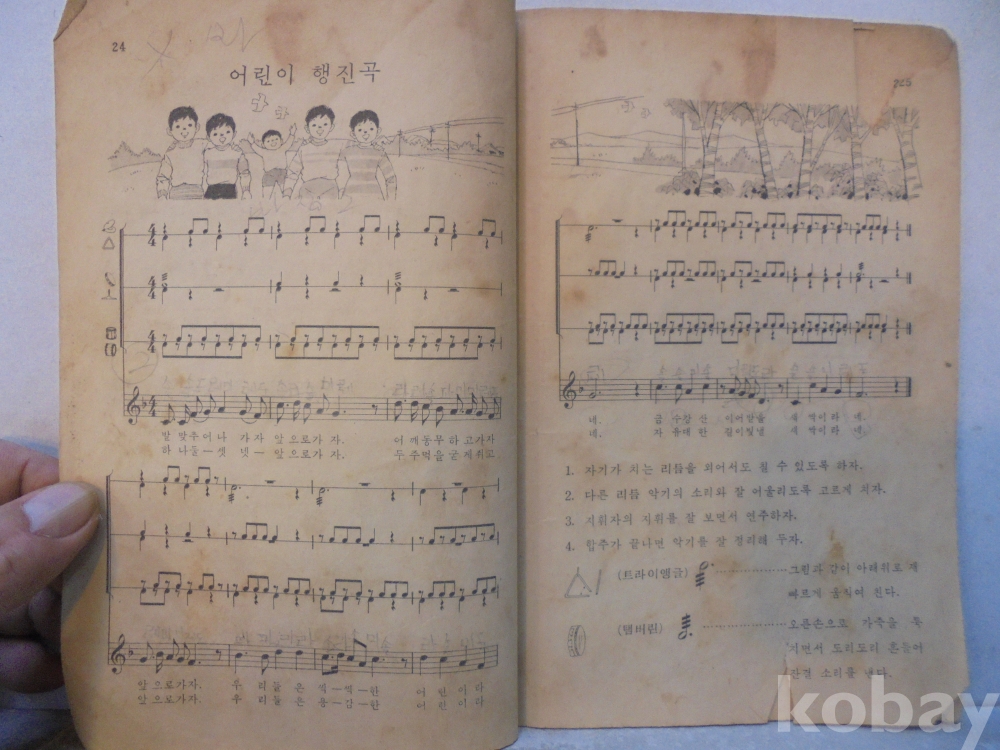 24
어린이 행진곡
발 맞추어나 가자 앞으로가 자. 어깨동무하고가자
하나둘—셋 넷— 앞으로가 자. 두주먹을굳게쥐고
앞으로가자. 우리들은씩—씩—한 어린이라
앞으로가자. 우리들은용—감—한 어린이라
네. 금수강산 이어받을 새싹이라 네.
네. 자유대한 길이빛낼 새싹이라 네.
1. 자기가 치는 리듬을 외어서도 칠 수 있도록 하자.
2. 다른 리듬 악기의 소리와 잘 어울리도록 고르게 치자.
3. 지휘자의 지휘를 잘 보면서 연주하자.
4. 합주가 끝나면 악기를 잘 정리해 두자.
(트라이앵글) 그림과 같이 아래위로 재
빠르게 움직여 친다.
(탬버린) 오른손으로 가죽을 둑
치면서 도리도리 흔들어
잔결 소리를 낸다.
kobay